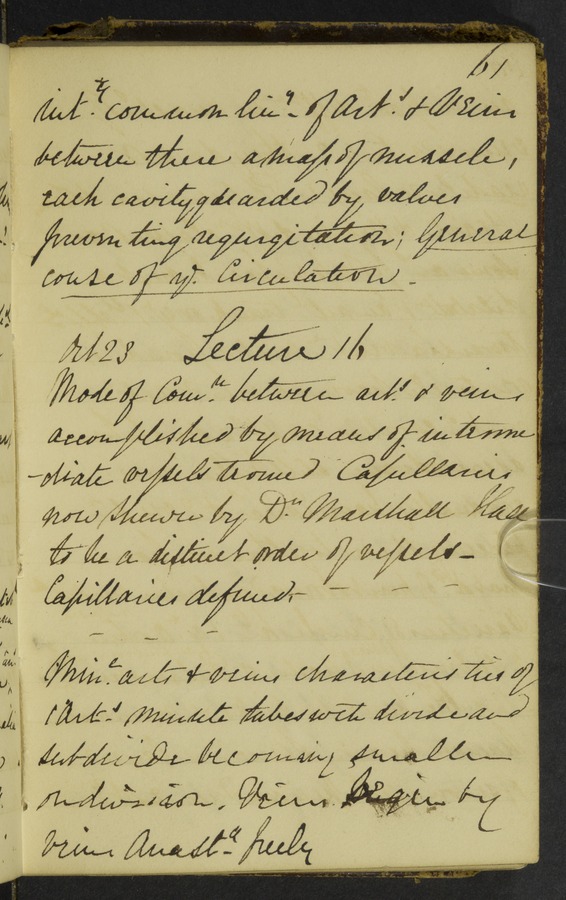 61
common lin.g of Art.s & Veins
between these a mass of muscle,
each cavity guarded by valves
preventing regurgitation; General
couse of ye. Circulation.
Oct 23 Lecture 16
Mode of Com.n between art.s & veins
accomplished by means of interme
-diate vessels Capillaries
now shewn by Dr. Marshall Hall
to be a distinct order of vessels -
Capillaries defined - - - -
- - -
Min.e arts & veins characteristics of
Art.s minute tubes wch divide and
subdivide becoming smaller
on division. Veins begin by
veins Anast.g freely